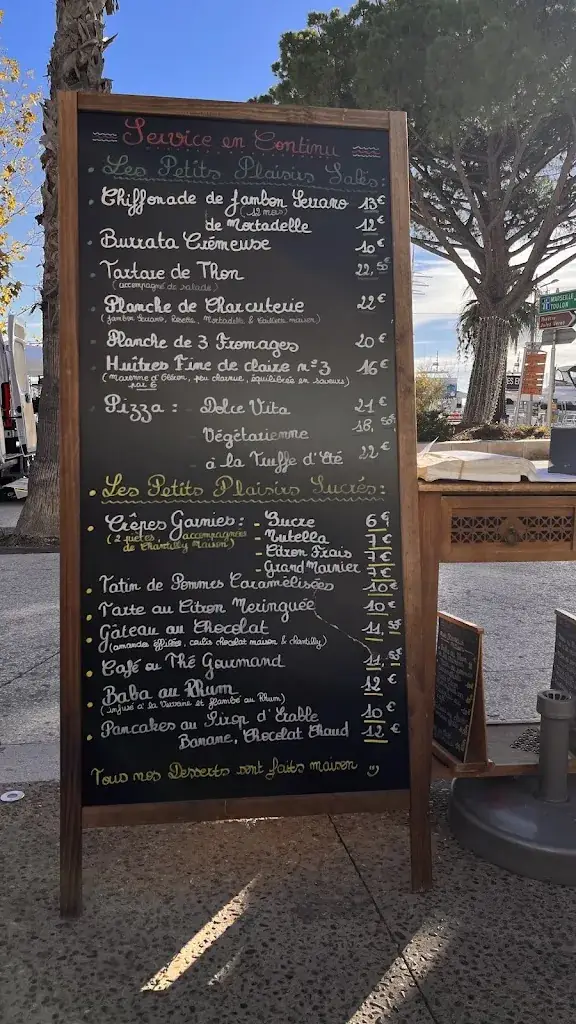 Service en Continu
Les Petits Plaisirs Salés :
Chiffonade de Jambon Serrano 13€
(12 mois)
de Mortadelle 12€
Burrata Crémeuse 10€
Tartare de Thon 22,50€
(accompagné de salade)
Planche de Charcuterie 22€
(Jambon Serrano, Rosette, Mortadelle & maison)
Planche de 3 Fromages 20€
Huîtres Fine de claire n°3 16€
(marenne d'Oléron, peu charnue, équilibrée en saveurs)
par 6
Pizza : - Dolce Vita 21€
- Végétarienne 18,50€
- à la Truffe d'Eté 22€
Les Petits Plaisirs Sucrés :
Crêpes Garnies : - Sucre 6€
(2 pièces, accompagnées - Nutella 7€
de Chantilly maison) - Citron Frais 7€
- Grand Marnier 7€
Tatin de Pommes Caramélisées 10€
Tarte au Citron Meringuée 10€
Gâteau au Chocolat 11,50€
(amandes effilées, coulis chocolat maison & chantilly)
Café ou Thé Gourmand 11,50€
Baba au Rhum 12€
(infusé à la Verveine et flambé au Rhum)
Pancakes au Sirop d'Erable 10€
Banane, Chocolat Chaud 12€
Tous nos Desserts sont faits maison
MARSEILLE
TOULON